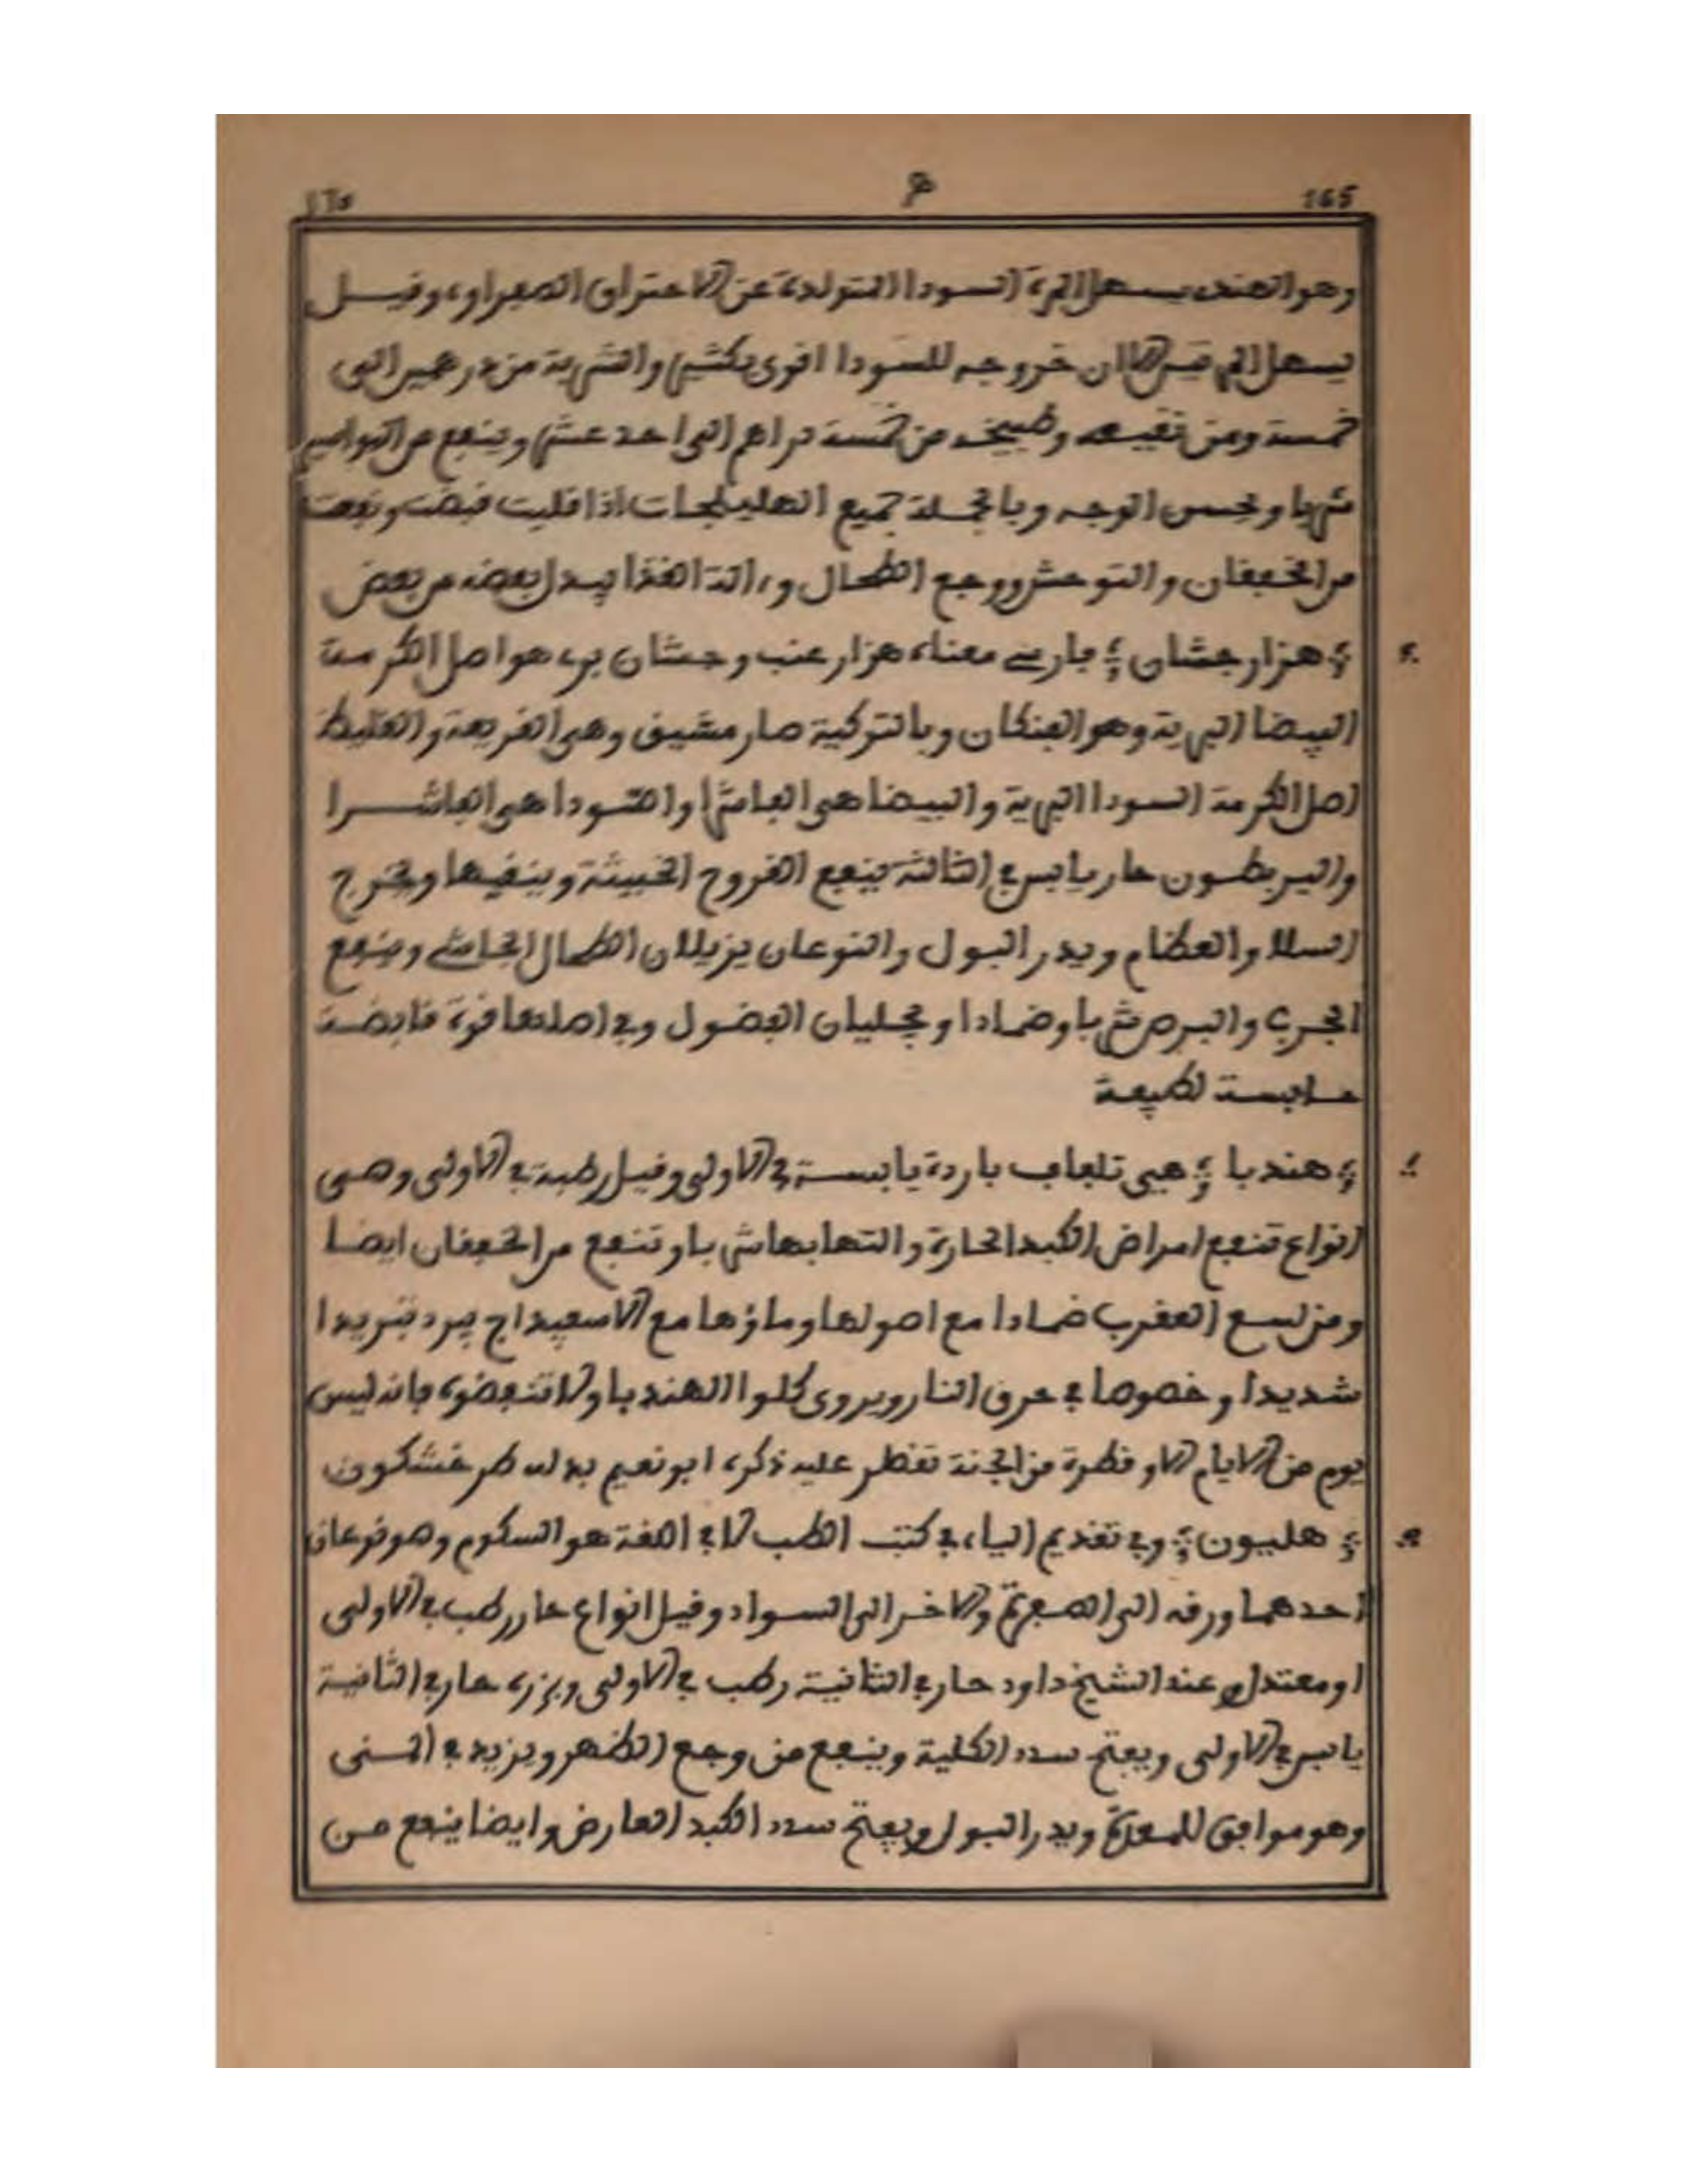 165 ه‍ ١٦٥
وهو الهندى يسهل المرة السودا المتولدة عن الاحتراق الصفراوى وقيل
يسهل المرتين الا ان خروجه للسودا اقوى بكثير والشربة من درهمين الى
خمسة ومن نقيعه وطبيخه من خمسة دراهم الى احد عشر وينفع من البواسير
شربا ويحسن الوجه وبالجملة جميع الهليلجات اذا قليت قبضت ونفعت
من الخفقان والتوحش ووجع الطحال و الة الغذا يبدل بعضه من بعض
هزارجشان فارسي معناه هزار عنب وجشان بري هو اصل الكرمة
البيضا البرية وهو العنكان وبالتركية صارمشيق وهي القريعة والغليظ
اصل الكرمة السودا البرية والبيضا هي الفاشرا والسودا هي الفاشرا
والبربطون حار يابس في الثالثة ينفع القروح الخبيثة وينقيها ويخرج
السلا والعظام ويدر البول والنوعان يزيلان الطحال الجاسي وينفع
الجرب والبرص شربا وضمادا ويجليان الفضول وفي اصلها قوة قابضة
حابسة لطبيعة
هندبا هي تلفاف باردة يابسة في الاولى وقيل رطبة في الاولى وهي
انواع تنفع امراض الكبد الحارة والتهابها شربا وتنفع من الخفقان ايضا
ومن لسع العقرب ضمادا مع اصولها وماؤها مع الاسفيداج يبرد تبريدا
شديدا وخصوصا في حرق النار ويروى كلوا الهندبا ولا تنفضوه فانه ليس
يوم من الايام الا وقطرة من الجنة تقطر عليه ذكره ابو نعيم بدله طرخشكون
هليون وفي تقديم الياء في كتب الطب لا في اللغة هو السكوم وهو نوعان
احدهما ورقه الى الصفرة والاخر الى السواد وقيل انواع حار رطب في الاولى
او معتدل وعند الشيخ داود حار في الثانية رطب في الاولى وبزره حار في الثانية
يابس في الاولى ويفتح سدد الكلية وينفع من وجع الظهر ويزيد في المنى
وهو موافق للمعدة ويدر البول ويفتح سدد الكبد العارض وايضا ينفع من